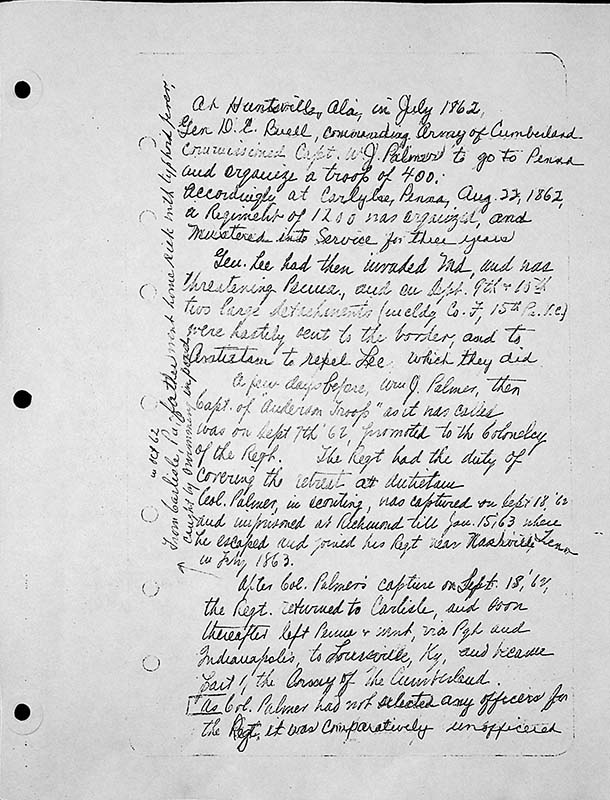 At Huntsville, Ala, in July 1862,
Gen D. C. Buell, commanding Army of Cumberland
commissioned Capt. W J. Palmer to go to Penna
and organize a troop of 400.
Accordingly, at Carlylse, Penna, Aug. 22, 1862,
a Regiment of 1200 was organized, and
Mustered into Service for three years
Gen. Lee had then invaded Md, and was
threatening Penna, and on Sept. 9th & 15th
two large detachments (includg Co. F, 15th Pa. V.C)
were hastily sent to the border, and to
Antietam to repel Lee. Which they did
A few days before, Wm J. Palmer, then
Capt. of "Anderson Troop" as it was called
was on Sept 9th '62, promoted to the Colonelcy
of the Regt. The Regt had the duty of
covering the retreat at Antietam
Col. Palmer, in scouting, was captured on Sept 18, '62
and imprisoned at Richmond till Jan. 15, '63 where
he escaped and joined his Regt near Nashville, Tenn
in Feby 1863.
After Col. Palmer's capture on Sept. 18, '62,
the Regt. returned to Carlisle, and soon
thereafter left Penna & went, via Pgh and
Indianapolis, to Louisville, Ky, and became
Part of the Army of The Cumberland.
As Col. Palmer had not selected any officers for
the Regt, it was comparatively unofficered
in Oct 62
From Carlisle, Pa, father went home sick with typhoid fever,
caught by swimming in pond